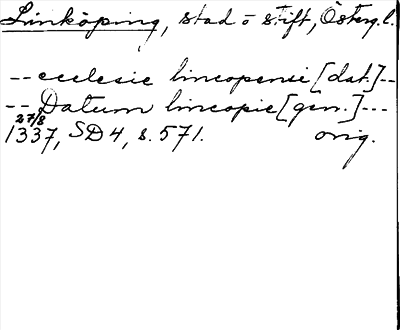 Linköping, stad o stift, Österg.l.
-- ecclesie lincopensi [dat.] --
-- Datum lincopie [gen.] ---
27/8
1337, SD 4, s. 571. orig.